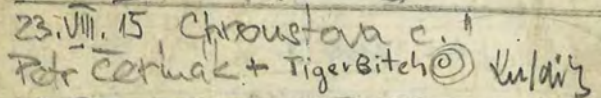 23.VIII.15 Chroustova c.
Petr Čermák + TigerBitch